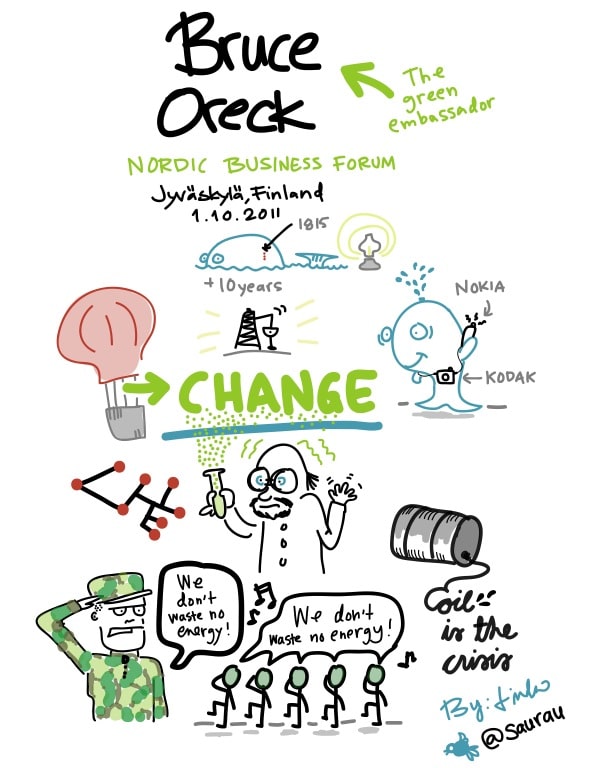 Bruce
Oreck
The
green
embassador
NORDIC BUSINESS FORUM
Jyväskylä, Finland
1.10.2011
1815
+10years
NOKIA
KODAK
CHANGE
We
don't
waste no
energy!
We don't
waste no energy!
oil
is the
crisis
By:
@saurau